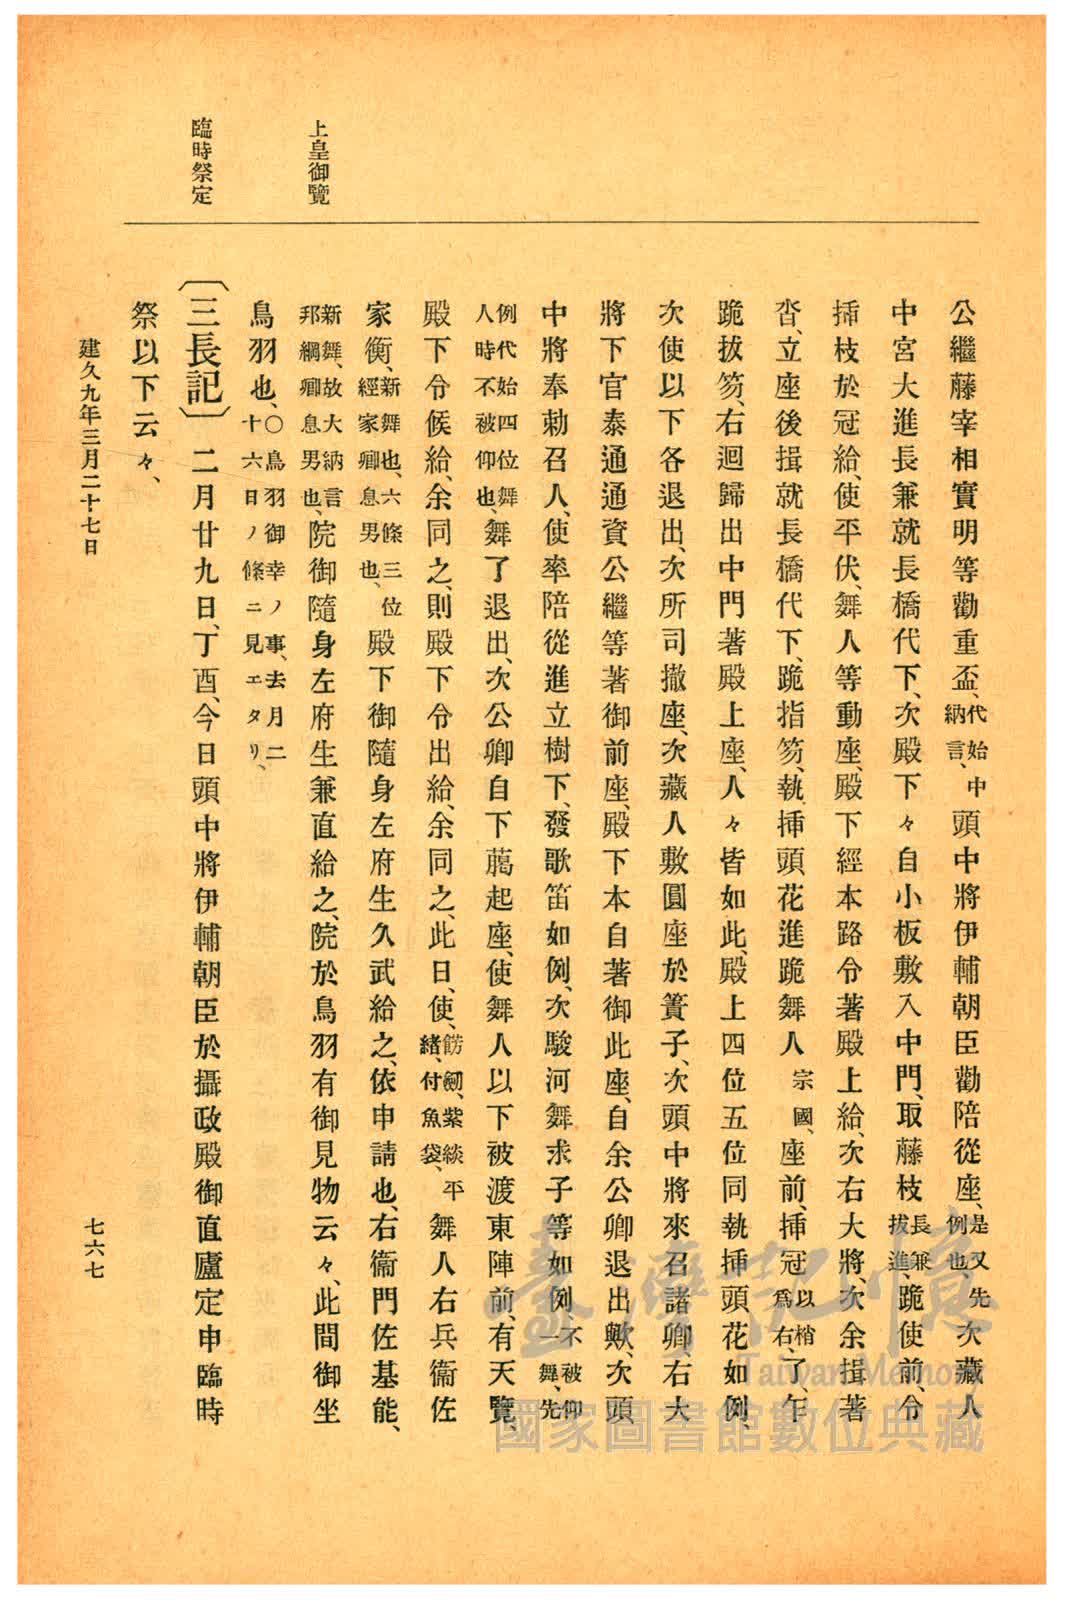 上皇御覽
臨時祭定
公繼藤宰相實明等勸重盃、代始中納言、頭中將伊輔朝臣勸陪從座、是又先例也、次藏人
中宮大進長兼就長橋代下、次殿下々自小板敷入中門、取藤枝長兼拔進、跪使前、令
挿枝於冠給、使平伏、舞人等動座、殿下經本路令著殿上給、次右大將、次余揖著
沓、立座後揖就長橋代下、跪指笏、執挿頭花進跪舞人宗國、座前、挿冠以梢爲右、了、乍
跪拔笏、右廻歸出中門著殿上座、人々皆如此、殿上四位五位同執挿頭花如例、
次使以下各退出、次所司撤座、次藏人敷圓座於簀子、次頭中將來召諸卿、右大
將下官泰通通資公繼等著御前座、殿下本自著御此座、自余公卿退出歟、次頭
中將奉勅召人、使率陪從進立樹下、發歌笛如例、次駿河舞求子等如例不被仰一舞、先
例代始四位舞人時不被仰也、舞了退出、次公卿自下﨟起座、使舞人以下被渡東陣前、有天覽、
殿下令候給、余同之、則殿下令出給、余同之、此日、使、餝劒、紫緂平緒、付魚袋、舞人右兵衞佐
家衡、新舞也、六條三位經家卿息男也、殿下御隨身左府生久武給之、依申請也、右衞門佐基能、
新舞、故大納言邦綱卿息男也、院御隨身左府生兼直給之、院於鳥羽有御見物云々、此間御坐
鳥羽也、〇鳥羽御幸ノ事、去月二十六日ノ條ニ見エタリ、
〔三長記〕二月廿九日、丁酉、今日頭中將伊輔朝臣於攝政殿御直廬定申臨時
祭以下云々、
建久九年三月二十七日
七六七
臺灣記憶
Taiwan Memory
國家圖書館數位典藏